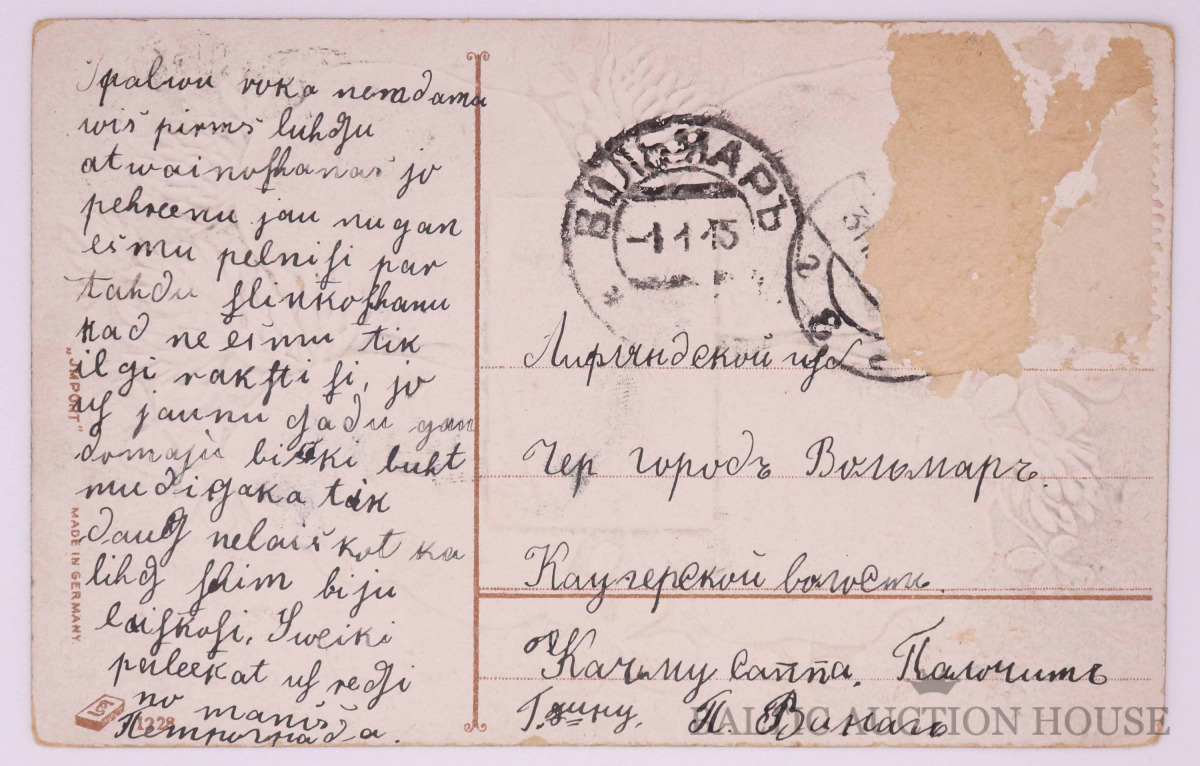 Spalwu roka nemdama
wiš pirmš luhdju
atwainoſhanaš jo
pehreenu jau nu gan
ešmu pelniſi par
tahdu ſlinkoſhanu
kad ne ešmu tik
ilgi rakſtiſi, jo
uſ jaunu gadu gan
domaju biški buht
mudigaka tik
daudſ nelaiškot ka
lihdſ ſhim biju
laiſkoſi. Sweiki
paleekat uſ redſi
no maniš
Петрограда.
„IMPORT"
MADE IN GERMANY.
1228
ВОЛЬМАРЪ
-1 1 15
Лифляндской губ
Чер городъ Вольмаръ.
Каугерской волости.
Качьму саппа. Палочить
Г.дину. П. Виначъ
BALTIC AUCTION HOUSE